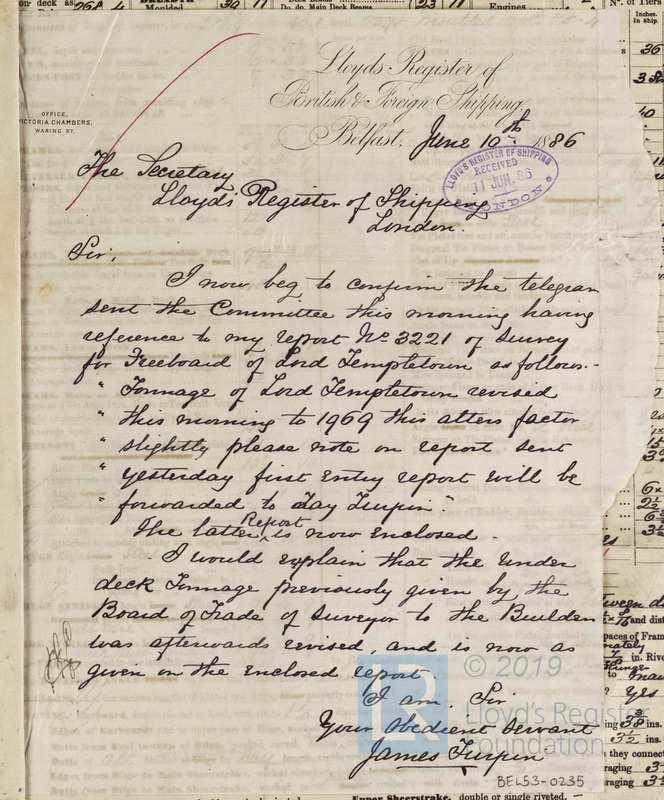 Lloyds Register of
British & Foreign Shipping.
OFFICE,
VICTORIA CHAMBERS,
WARING ST.
Belfast, June 10th 1886
LLOYD'S REGISTER OF SHIPPING
RECEIVED
11 JUN. 86
LONDON
The Secretary
Lloyds Register of Shipping
London.
Sir,
I now beg to confirm the telegram
sent the Committee this morning having
reference to my report No. 3221 of Survey
for Freeboard of Lord Templetown as follows:-
" Tonnage of Lord Templetown revised
" this morning to 1969 this alters factor
" slightly please note on report sent
" yesterday first entry report will be
" forwarded to day Turpin".
The latter Report is now enclosed.
I would explain that the under
deck Tonnage previously given by the
Board of Trade of Surveyor to the Builders
was afterwards revised, and is now as
given on the enclosed report.
I am, Sir
Your Obedient Servant
James Turpin
© 2019
Lloyd's Register
Foundation
BEL53-0235